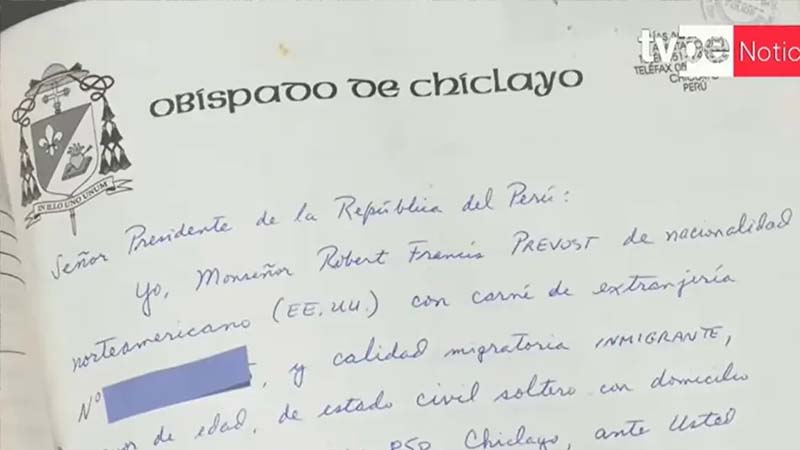 tvpe Notic
TELÉFAX
CHICLAYO
PERÚ
OBISPADO DE CHICLAYO
IN ILLO UNO UNUM
Señor Presidente de la República del Perú:
Yo, Monseñor Robert Francis PREVOST de nacionalidad
norteamericano (EE.UU.) con carné de extranjería
Nº , y calidad migratoria INMIGRANTE,
de edad, de estado civil soltero con domicilio
Chiclayo, ante Usted